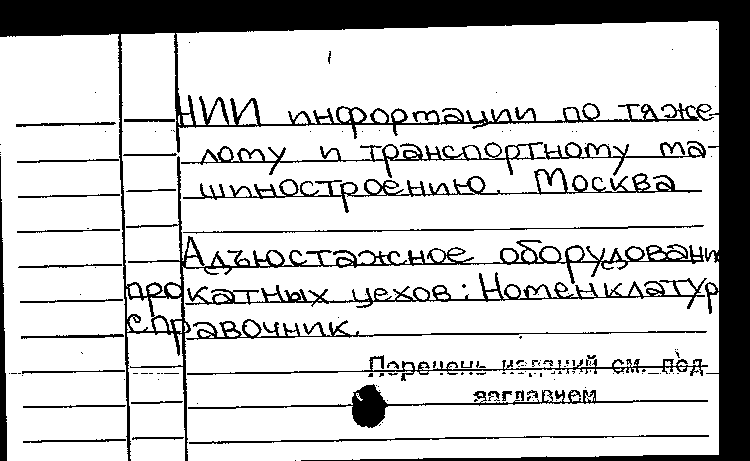 НИИ информации по тяже-
лому и транспортному ма-
шиностроению. Москва
Адъюстажное оборудовани
прокатных цехов: Номенклатур
справочник.
Перечень изданий см. под
заглавием